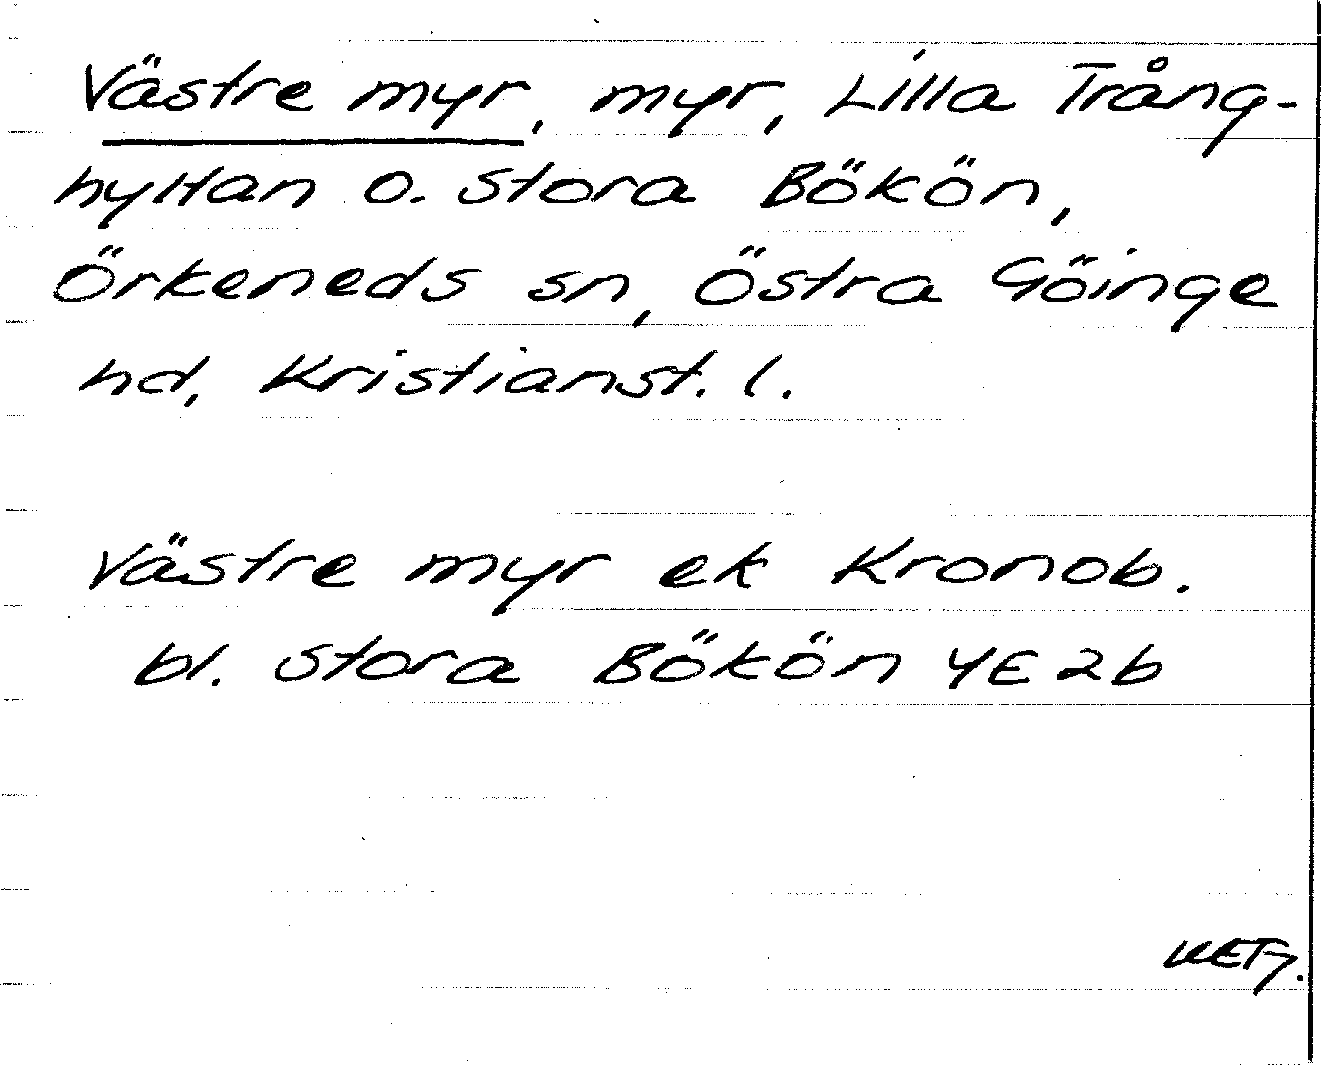 Västre myr, myr, Lilla Trång-
hyltan o. Stora Bökön,
Örkeneds sn, Östra Göinge
hd, Kristianst. l.
Västre myr ek Kronob.
bl. Stora Bökön 4E2b